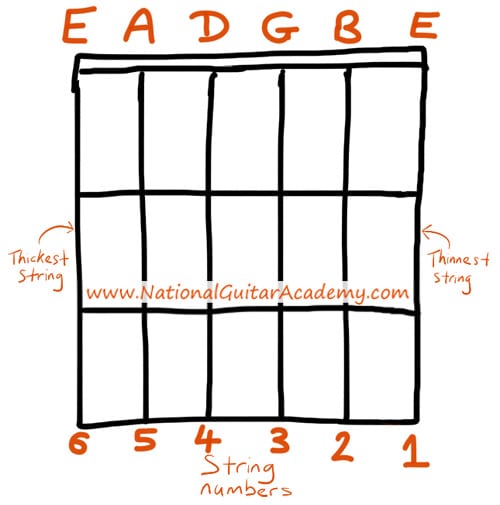 E A D G B E
Thickest
String
Thinnest
string
www.NationalGuitarAcademy.com
6 5 4 3 2 1
String
numbers